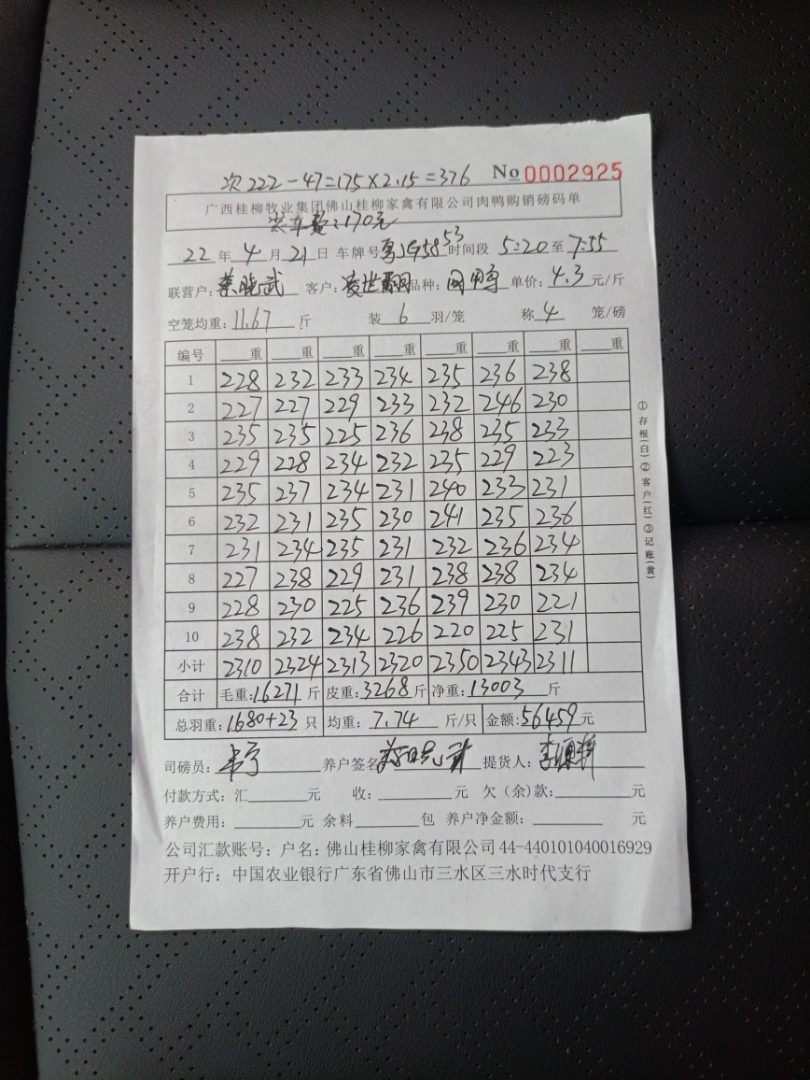 次222-47=175×2.15=376 No 0002925
广西桂柳牧业集团佛山桂柳家禽有限公司肉鸭购销磅码单
装车费:170元
22年4月21日 车牌号 粤JG5853 时间段 5:20至7:55
联营户: 客户: 品种: 单价:4.3元/斤
空笼均重:11.67斤 装6羽/笼 称4笼/磅
编号 重 重 重 重 重 重 重 重
1 228 232 233 234 235 236 238
2 227 227 229 233 232 246 230
3 235 235 225 236 238 235 233
4 229 228 234 232 235 229 223
5 235 237 234 231 240 233 231
6 232 231 235 230 241 235 236
7 231 234 235 231 232 236 234
8 227 238 229 231 238 238 234
9 228 230 225 236 239 230 221
10 238 232 234 226 220 225 231
小计 2310 2324 2313 2320 2350 2343 2311
合计 毛重:16271斤 皮重:3268斤 净重:13003斤
总羽重:1680+23只 均重:7.74斤/只 金额:56459元
司磅员: 养户签名: 提货人:
付款方式:汇 元 收: 元 欠(余)款: 元
养户费用: 元 余料 包 养户净金额: 元
公司汇款账号:户名:佛山桂柳家禽有限公司44-440101040016929
开户行:中国农业银行广东省佛山市三水区三水时代支行
①存根(白)②客户(红)③记账(黄)